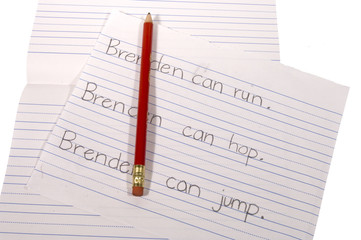 Brenden can run.
Brenden can hop.
Brenden can jump.